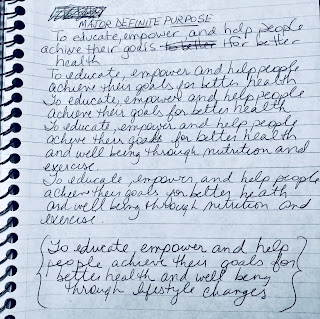 MAJOR DEFINITE PURPOSE
To educate, empower, and help people
achive their goals to better for better
health
To educate, empower and help people
achieve their goals for better health
To educate, empower and help people
achieve their goals for better health
To educate, empower and help people
achve their goals for better health
and well being through nutrition and
exercise.
To educate, empower, and help people
achieve their goals for better heath
and well being through nutrition and
exercise.
To educate, empower and help
people achieve their goals for
better health and well being
through lifestyle changes